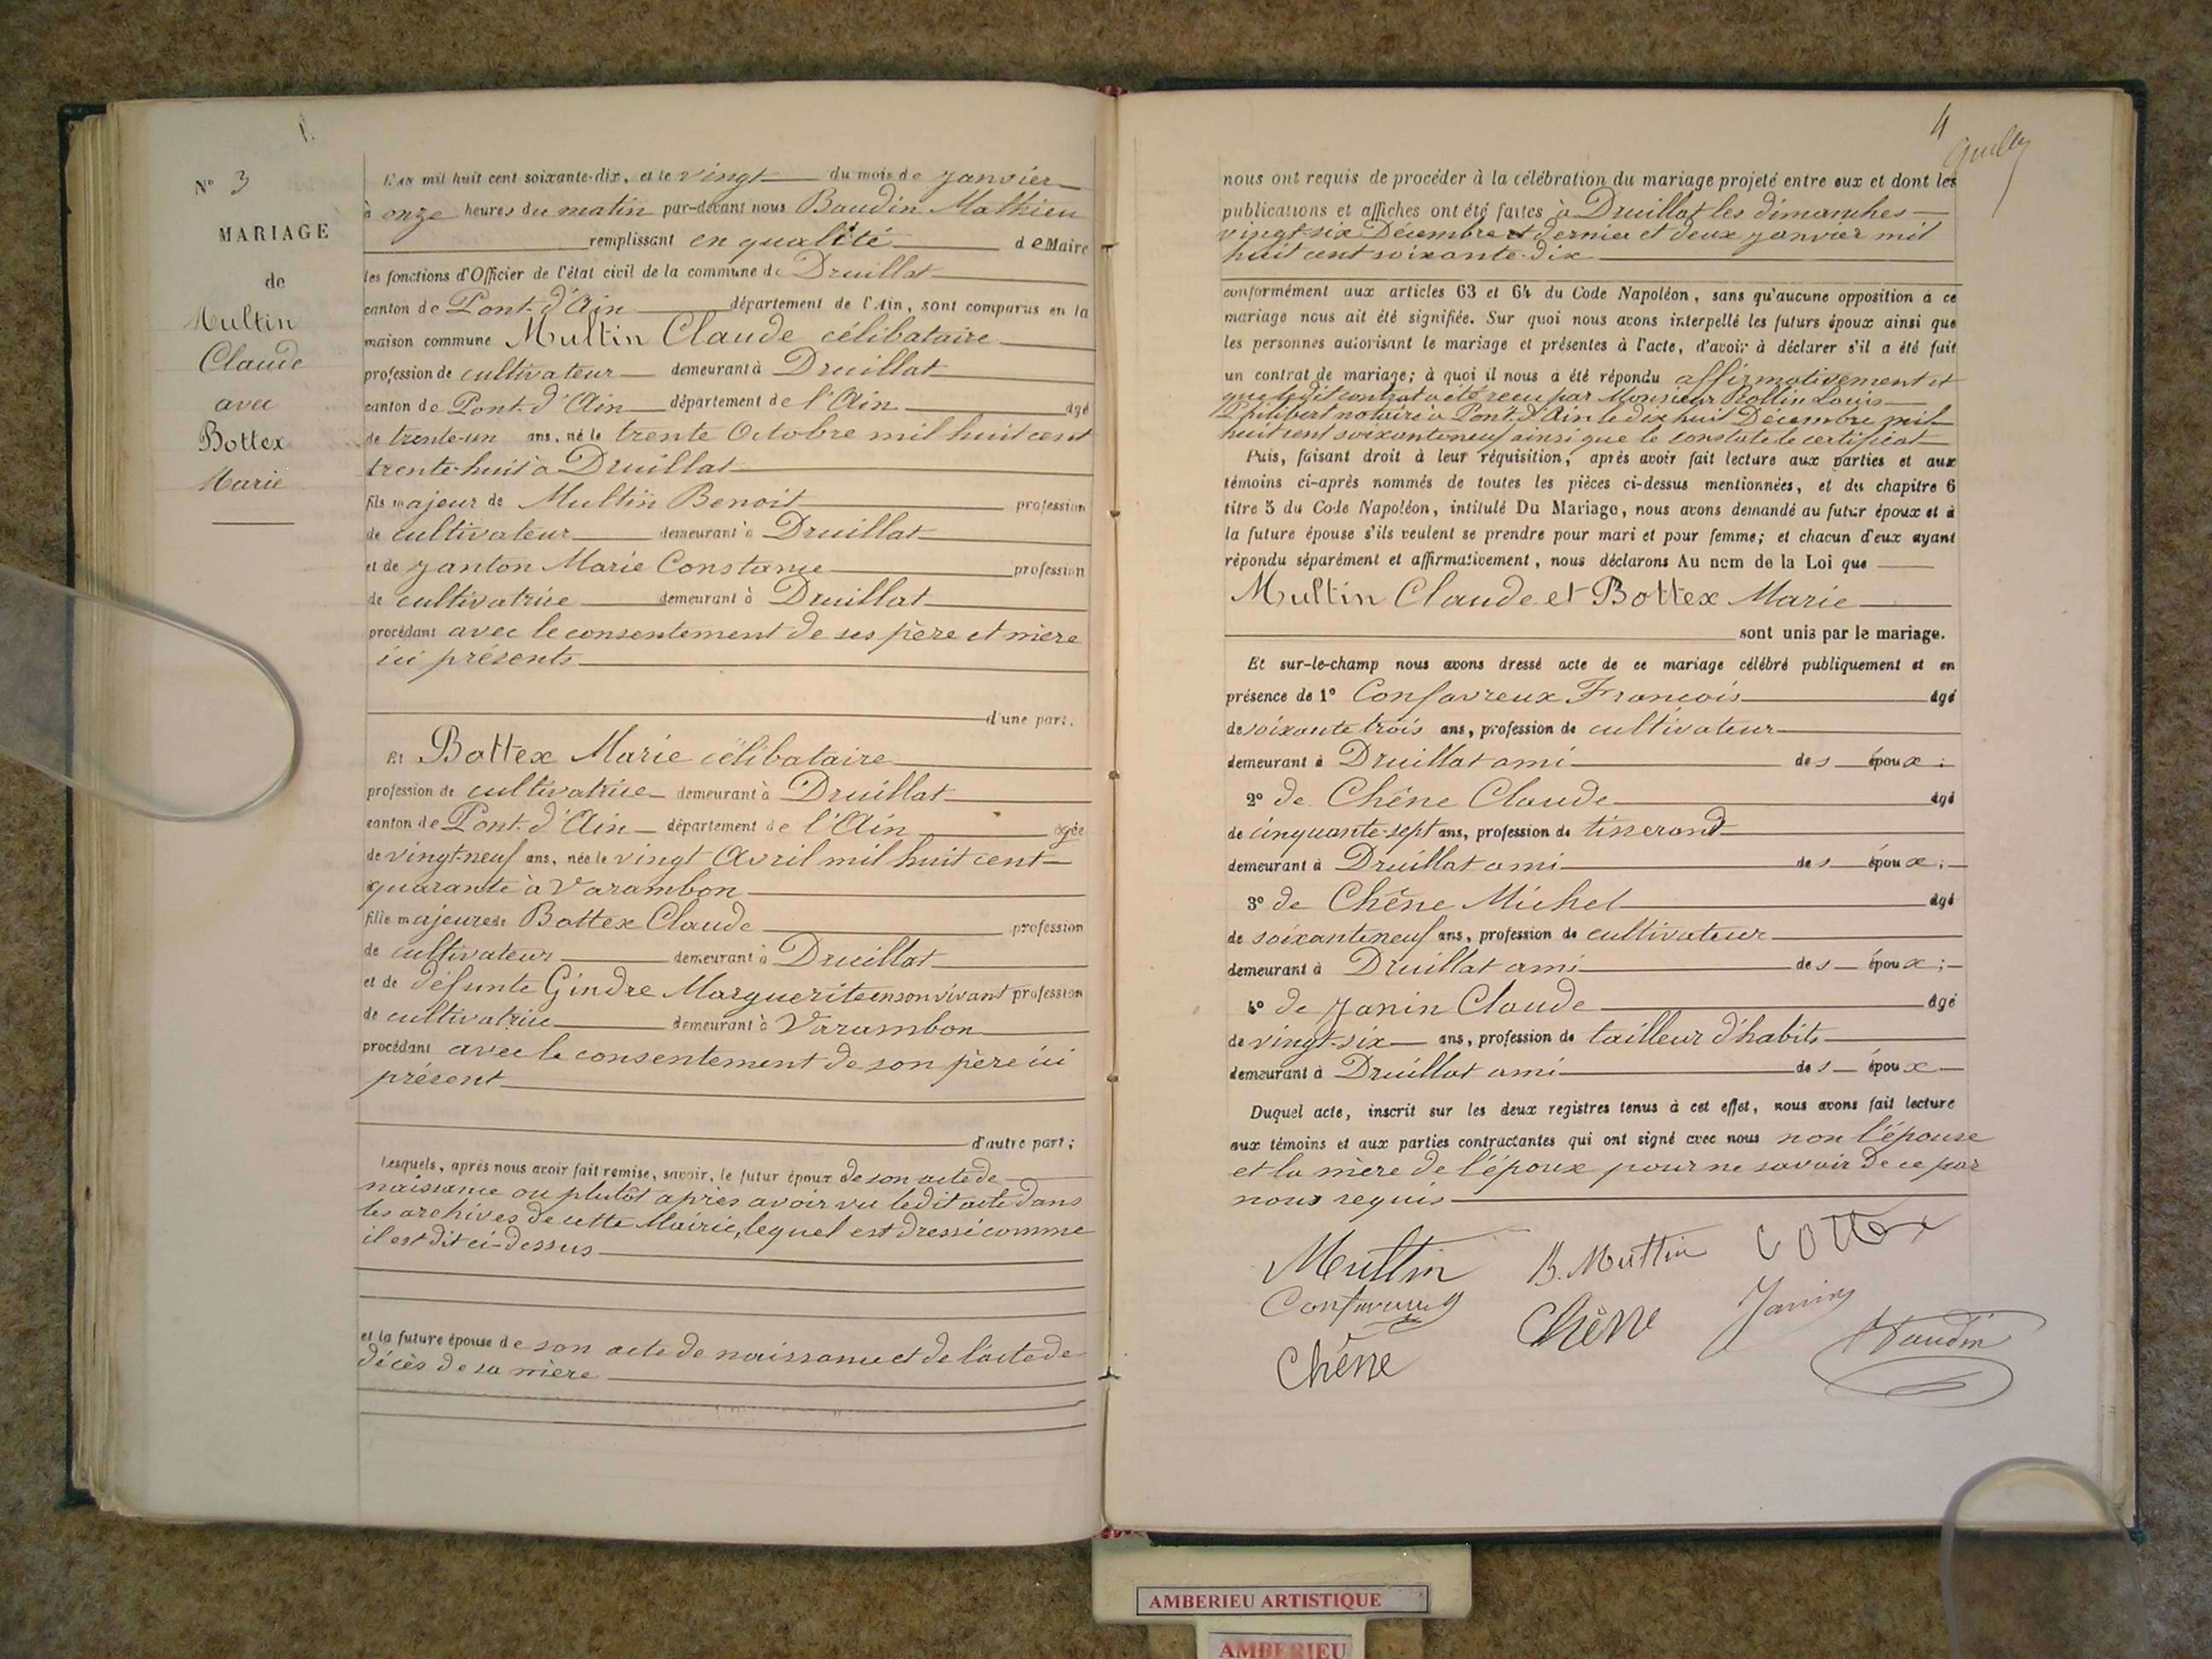 1.
N° 3
MARIAGE
de
Multin
Claude
avec
Bottex
Marie
L'AN mil huit cent soixante-dix, et le vingt du mois de Janvier
à onze heures du matin par-devant nous Baudin Mathieu
remplissant en qualité de Maire
les fonctions d'Officier de l'état civil de la commune de Druillat
canton de Pont-d'Ain département de l'Ain, sont comparus en la
maison commune Multin Claude célibataire
profession de cultivateur demeurant à Druillat
canton de Pont-d'Ain département de l'Ain âgé
de trente-un ans, né le trente Octobre mil huit cent
trente-huit à Druillat
fils majeur de Multin Benoit profession
de cultivateur demeurant à Druillat
et de Janton Marie Constance profession
de cultivatrice demeurant à Druillat
procédant avec le consentement de ses père et mère
ici présents
d'une part.
Et Bottex Marie célibataire
profession de cultivatrice demeurant à Druillat
canton de Pont-d'Ain département de l'Ain âgée
de vingt-neuf ans, née le vingt Avril mil huit cent
quarante à Varambon
fille majeure de Bottex Claude profession
de cultivateur demeurant à Druillat
et de défunte Gindre Marguerite en son vivant profession
de cultivatrice demeurant à Varambon
procédant avec le consentement de son père ici
présent
d'autre part;
Lesquels, après nous avoir fait remise, savoir, le futur époux de son acte de
naissance ou plutôt après avoir vu ledit acte dans
les archives de cette Mairie, lequel est dressé comme
il est dit ci-dessus
et la future épouse de son acte de naissance et de l'acte de
décès de sa mère
4
nous ont requis de procéder à la célébration du mariage projeté entre eux et dont les
publications et affiches ont été faites à Druillat les dimanches
vingt-six Décembre dernier et deux Janvier mil
huit cent soixante-dix
conformément aux articles 63 et 64 du Code Napoléon, sans qu'aucune opposition à ce
mariage nous ait été signifiée. Sur quoi nous avons interpellé les futurs époux ainsi que
les personnes autorisant le mariage et présentes à l'acte, d'avoir à déclarer s'il a été fait
un contrat de mariage; à quoi il nous a été répondu affirmativement et
que ledit contrat a été reçu par Monsieur Rollin Louis
Philibert notaire à Pont-d'Ain le dix huit Décembre mil
huit cent soixante neuf ainsi que le constate le certificat
Puis, faisant droit à leur réquisition, après avoir fait lecture aux parties et aux
témoins ci-après nommés de toutes les pièces ci-dessus mentionnées, et du chapitre 6
titre 5 du Code Napoléon, intitulé Du Mariage, nous avons demandé au futur époux et à
la future épouse s'ils veulent se prendre pour mari et pour femme; et chacun d'eux ayant
répondu séparément et affirmativement, nous déclarons Au nom de la Loi que
Multin Claude et Bottex Marie
sont unis par le mariage.
Et sur-le-champ nous avons dressé acte de ce mariage célébré publiquement et en
présence de 1° Confavreux François âgé
de soixante trois ans, profession de cultivateur
demeurant à Druillat ami des époux;
2° de Chêne Claude âgé
de cinquante-sept ans, profession de tisserand
demeurant à Druillat ami des époux;
3° de Chêne Michel âgé
de soixante neuf ans, profession de cultivateur
demeurant à Druillat ami des époux;
4° de Janin Claude âgé
de vingt-six ans, profession de tailleur d'habits
demeurant à Druillat ami des époux
Duquel acte, inscrit sur les deux registres tenus à cet effet, nous avons fait lecture
aux témoins et aux parties contractantes qui ont signé avec nous non l'épouse
et la mère de l'époux pour ne savoir de ce par
nous requis
Multin B. Muttin Bottex
Confavreux Chêne Janin
Chêne Baudin
AMBERIEU ARTISTIQUE
AMBERIEU